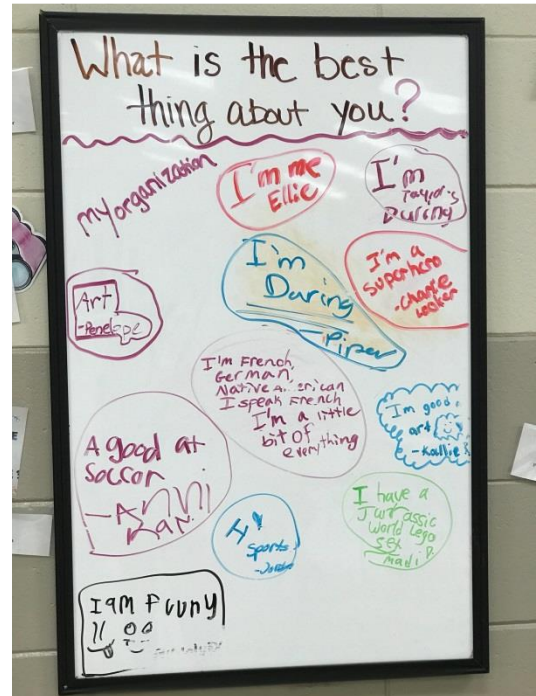 What is the best
thing about you?
my organization
I'm me
Ellie
I'm
Daring
Art
-Penelope
I'm
Daring
-Piper
I'm a
Superhero
-Chanse
I'm French,
German,
Native American
I speak French
I'm a little
bit of
everything
Im good
art
-Kallie
A good at
Soccor
-ANNi
I have a
Jurassic
World Lego
set
Madi D.
I
Sports
I am Fruny